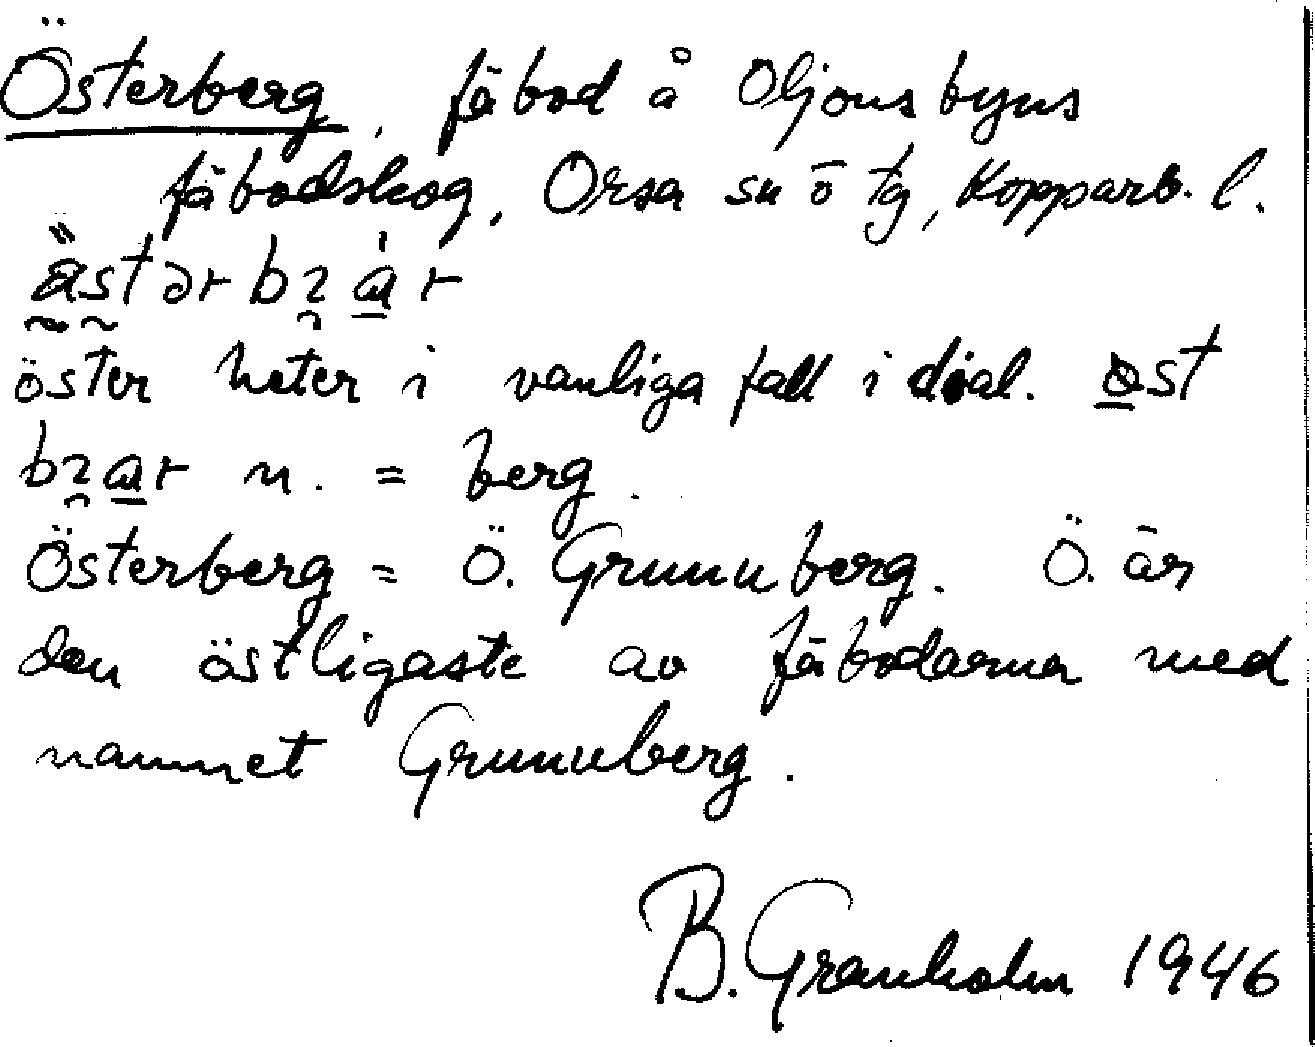 Österberg, fäbod å Oljonsbyns
fäbodskog, Orsa sn o tg, Kopparb. l.
östər
öster heter i vanliga fall i dial. ost
n. = berg.
Österberg = Ö. Grunuberg. Ö. är
den östligaste av fäbodarna med
namnet Grunuberg.
B. Granholm 1946